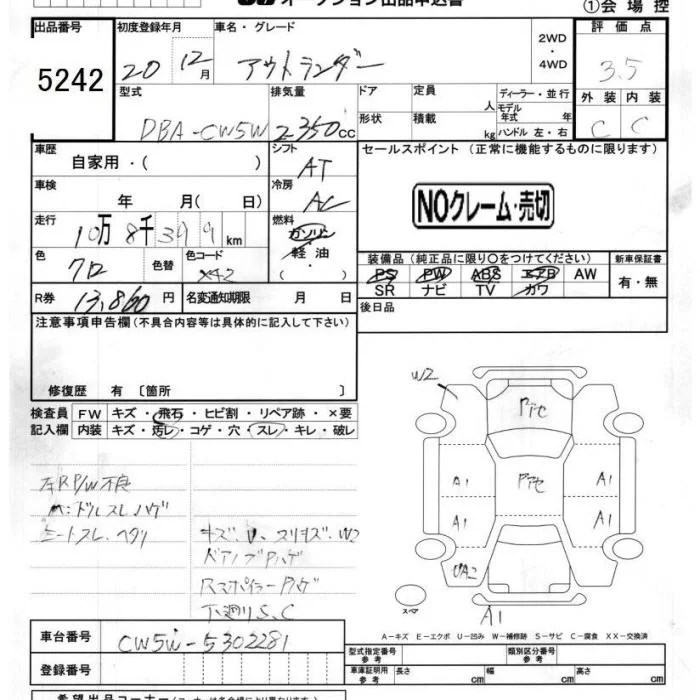 オークション出品申込書
①会場控
出品番号 初度登録年月 車名・グレード 2WD・4WD 評価点
5242 20年 12月 アウトランダー 3.5
型式 排気量 ドア 定員 人 ディーラー・並行 外装 内装
DBA-CW5W 2350cc 形状 積載 kg モデル年式 年 ハンドル 左・右 C C
車歴 自家用・( ) シフト AT セールスポイント (正常に機能するものに限ります)
車検 年 月( 日) 冷房 AC
NOクレーム・売切
走行 10万 8千 399 km 燃料 ガソリン・軽油・( )
色 クロ 色替 色コード X42
装備品 (純正品に限り○をつけてください) 新車保証書
PS PW ABS エアB AW 有・無
SR ナビ TV カワ
R券 13,860円 名変通知期限 月 日 後日品
注意事項申告欄 (不具合内容等は具体的に記入して下さい)
修復歴 有 〔箇所 〕
検査員 FW キズ・飛石・ヒビ割・リペア跡・×要
記入欄 内装 キズ・汚レ・コゲ・穴・スレ・キレ・破レ
左R P/W 不良
ハンドルスレ ハゲ
シートスレ、ヘタリ
キズ、U、スリキズ、W2
ドアノブ Pハゲ
Rスポイラー Pハゲ
下廻りS、C
W2
A1 A1
A1 A1
UA2
A1
スペア
A-キズ E-エクボ U-凹み W-補修跡 S-サビ C-腐食 XX-交換済
車台番号 CW5W-5302281 型式指定番号 参考 類別区分番号 参考
登録番号 車庫証明用 参考 長さ cm 幅 cm 高さ cm